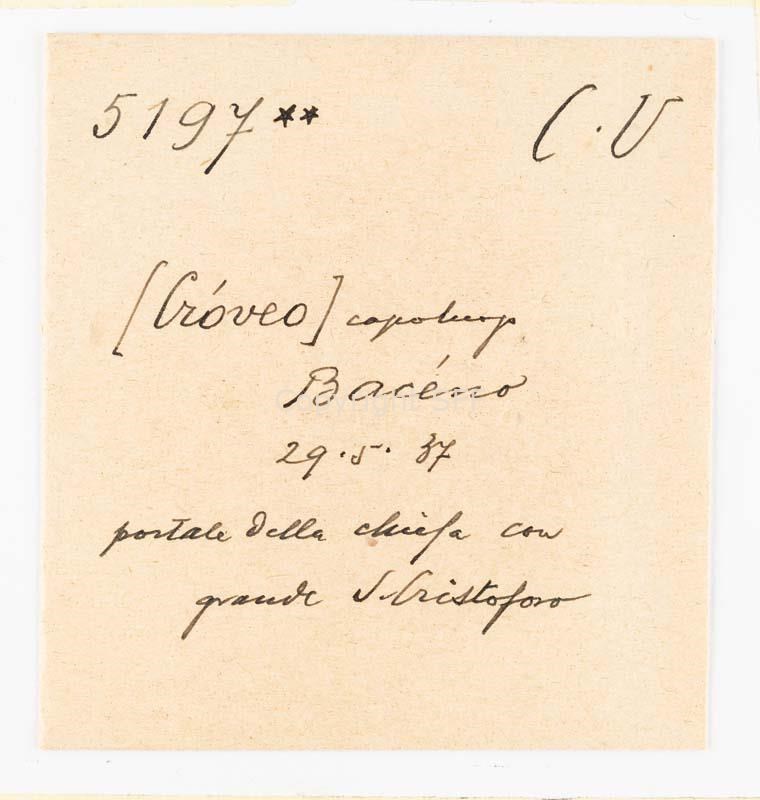 5197** C.V
[Cróveo] capoluogo
Bacéno
29.5.37
portale della chiesa con
grande S. Cristoforo